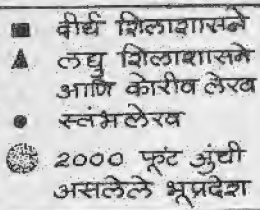 दीर्घ शिलाशासने
लघु शिलाशासने
आणि कोरीव लेख
स्तंभलेख
2000 फूट उंची
असलेले भूप्रदेश